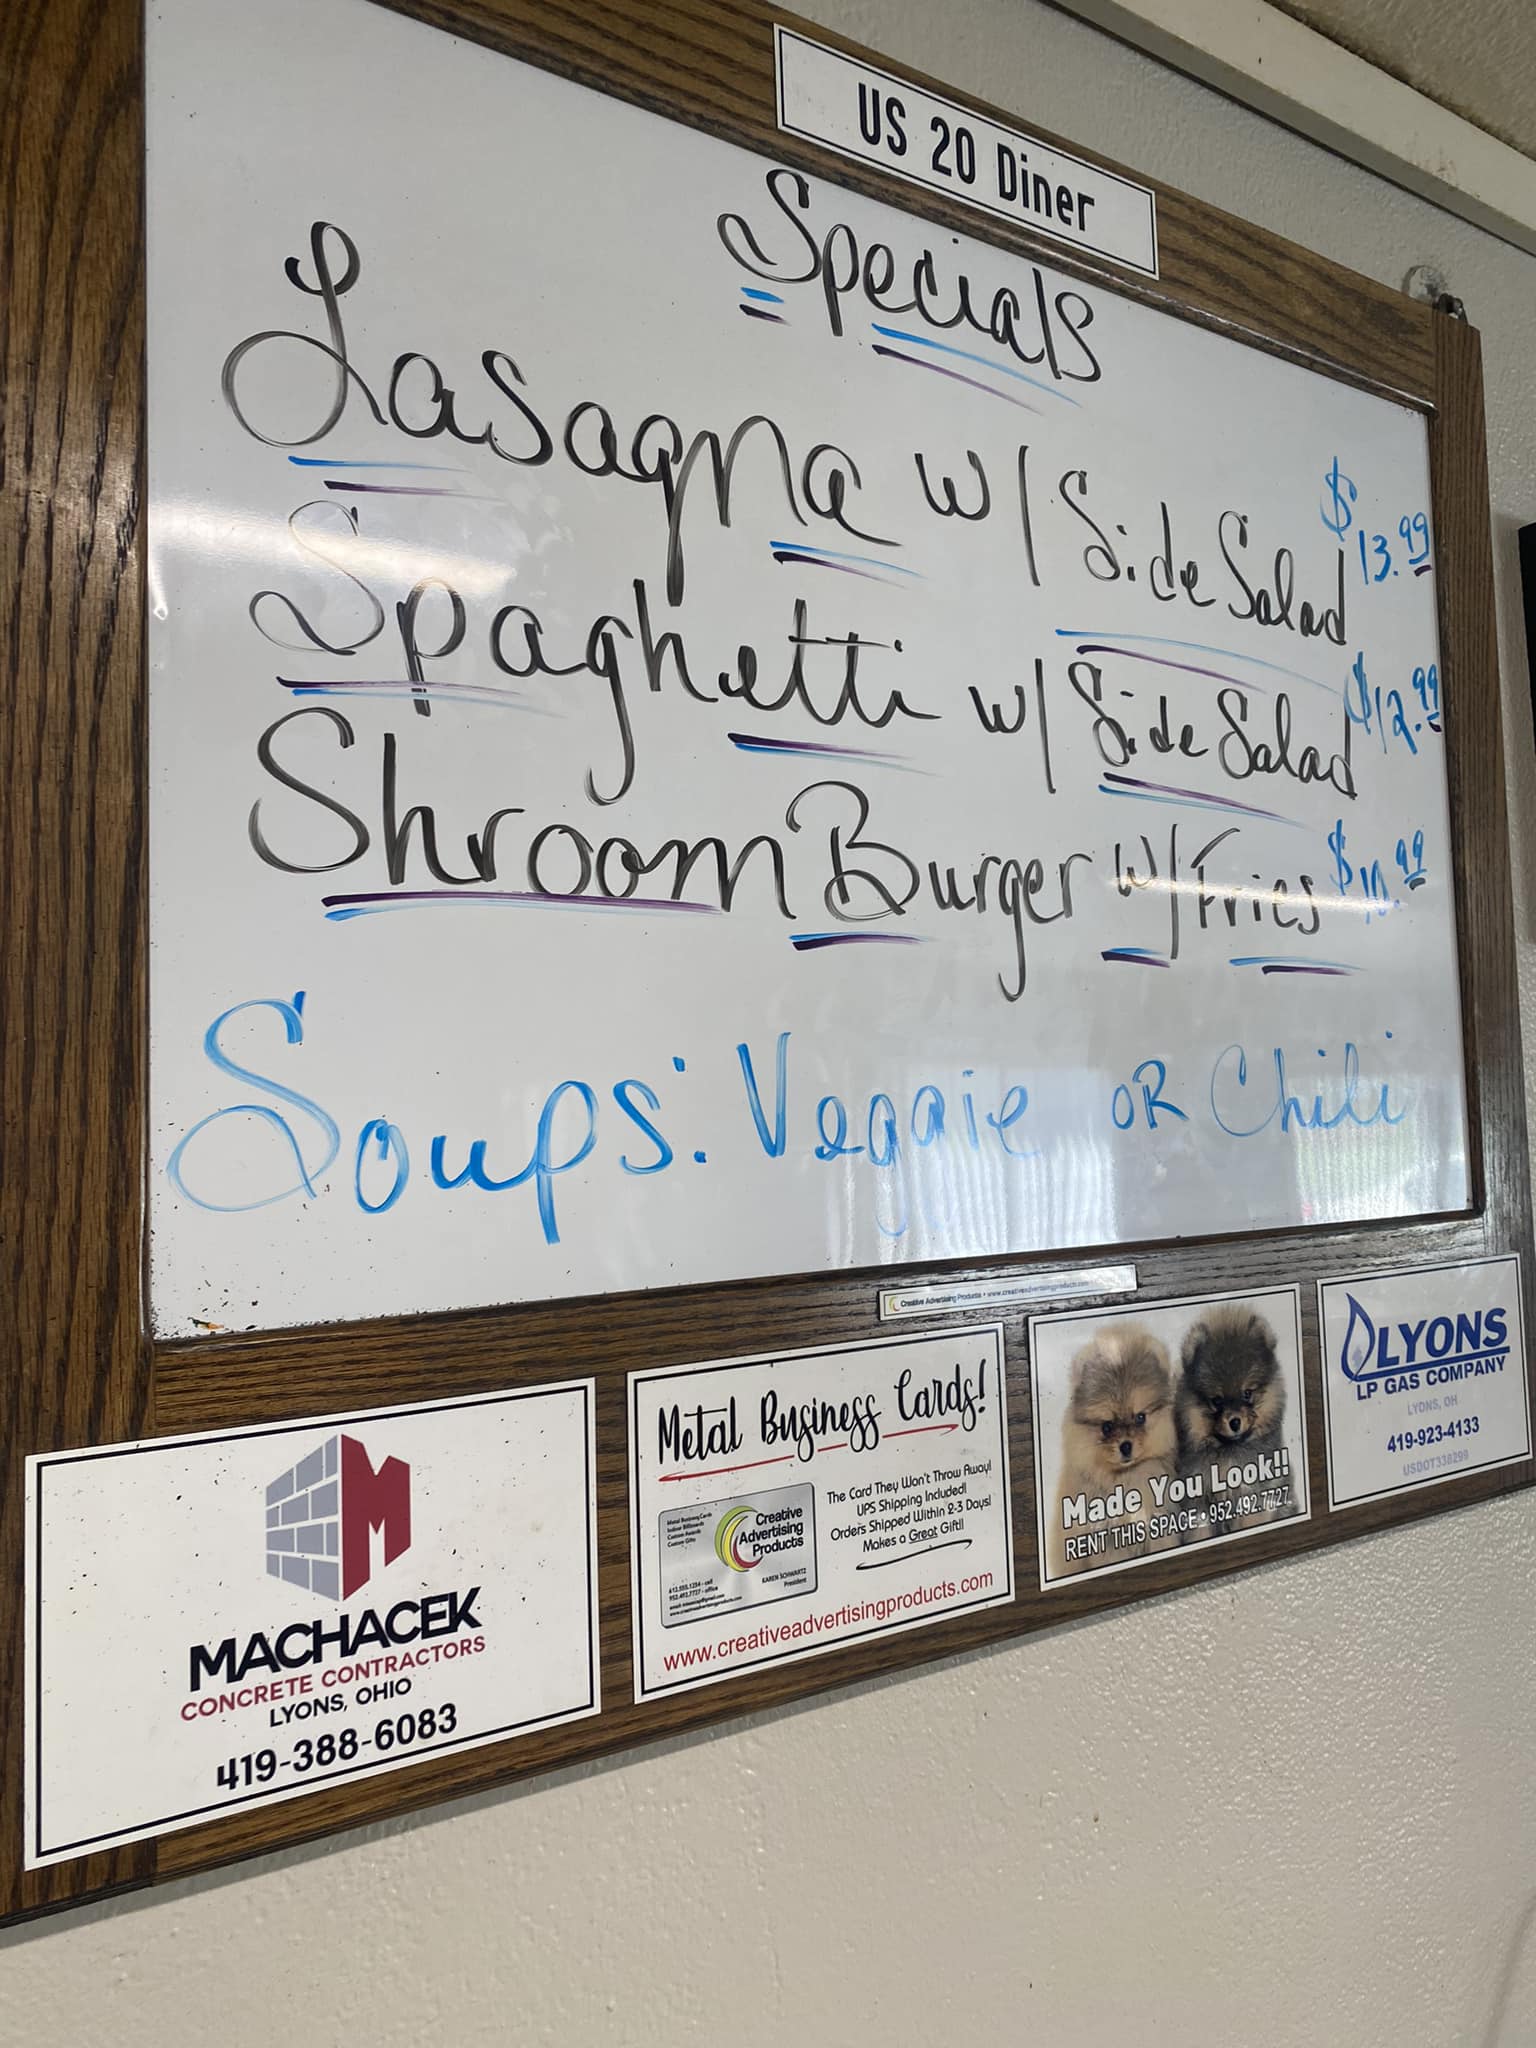 US 20 Diner
Specials
Lasagna w/ Side Salad $13.99
Spaghetti w/ Side Salad $12.99
Shroom Burger w/ Fries $10.99
Soups: Veggie OR Chili
Creative Advertising Products • www.creativeadvertisingproducts.com
M
MACHACEK
CONCRETE CONTRACTORS
LYONS, OHIO
419-388-6083
Metal Business Cards!
The Card They Won't Throw Away!
UPS Shipping Included!
Orders Shipped Within 2-3 Days!
Makes a Great Gift!!
Metal Business Cards
Indoor Billboards
Custom Awards
Custom Gifts
Creative
Advertising
Products
KAREN SCHWARTZ
President
612.555.1234 - cell
952.492.7727 - office
www.creativeadvertisingproducts.com
Made You Look!!
RENT THIS SPACE • 952.492.7727
LYONS
LP GAS COMPANY
LYONS, OH
419-923-4133
USDOT338299